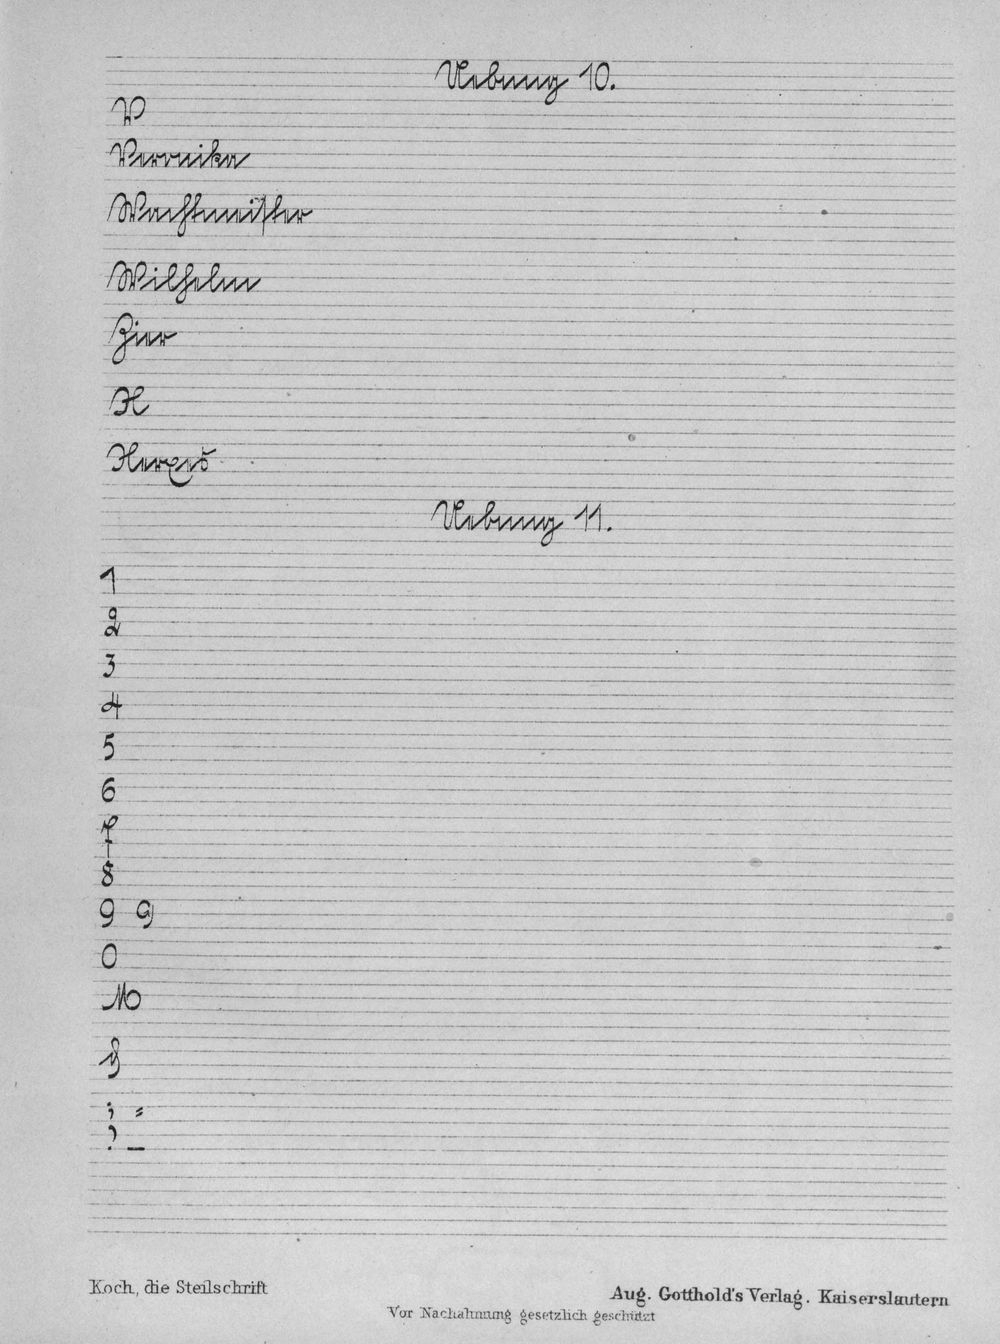 Uebung 10.
V
Veronika
Wachtmeister
Wilhelm
Zier
X
Xerxes
Uebung 11.
1
2
3
4
5
6
7
8
9 9
0
ℳ
₰
; =
? –
Koch, die Steilschrift
Aug. Gotthold's Verlag. Kaiserslautern
Vor Nachahmung gesetzlich geschützt